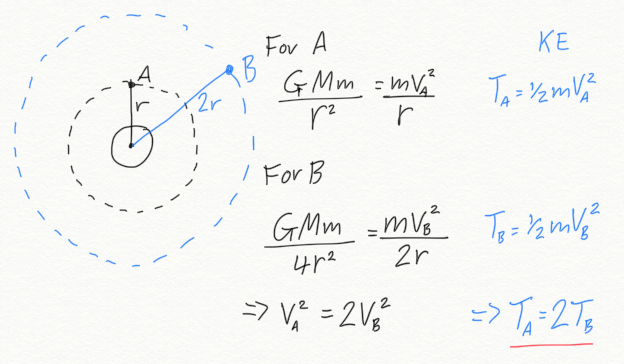 A
B
r
2r
For A
KE
GMm/r² = mV_A²/r
T_A = ½mV_A²
For B
GMm/4r² = mV_B²/2r
T_B = ½mV_B²
=> V_A² = 2V_B²
=> T_A = 2T_B